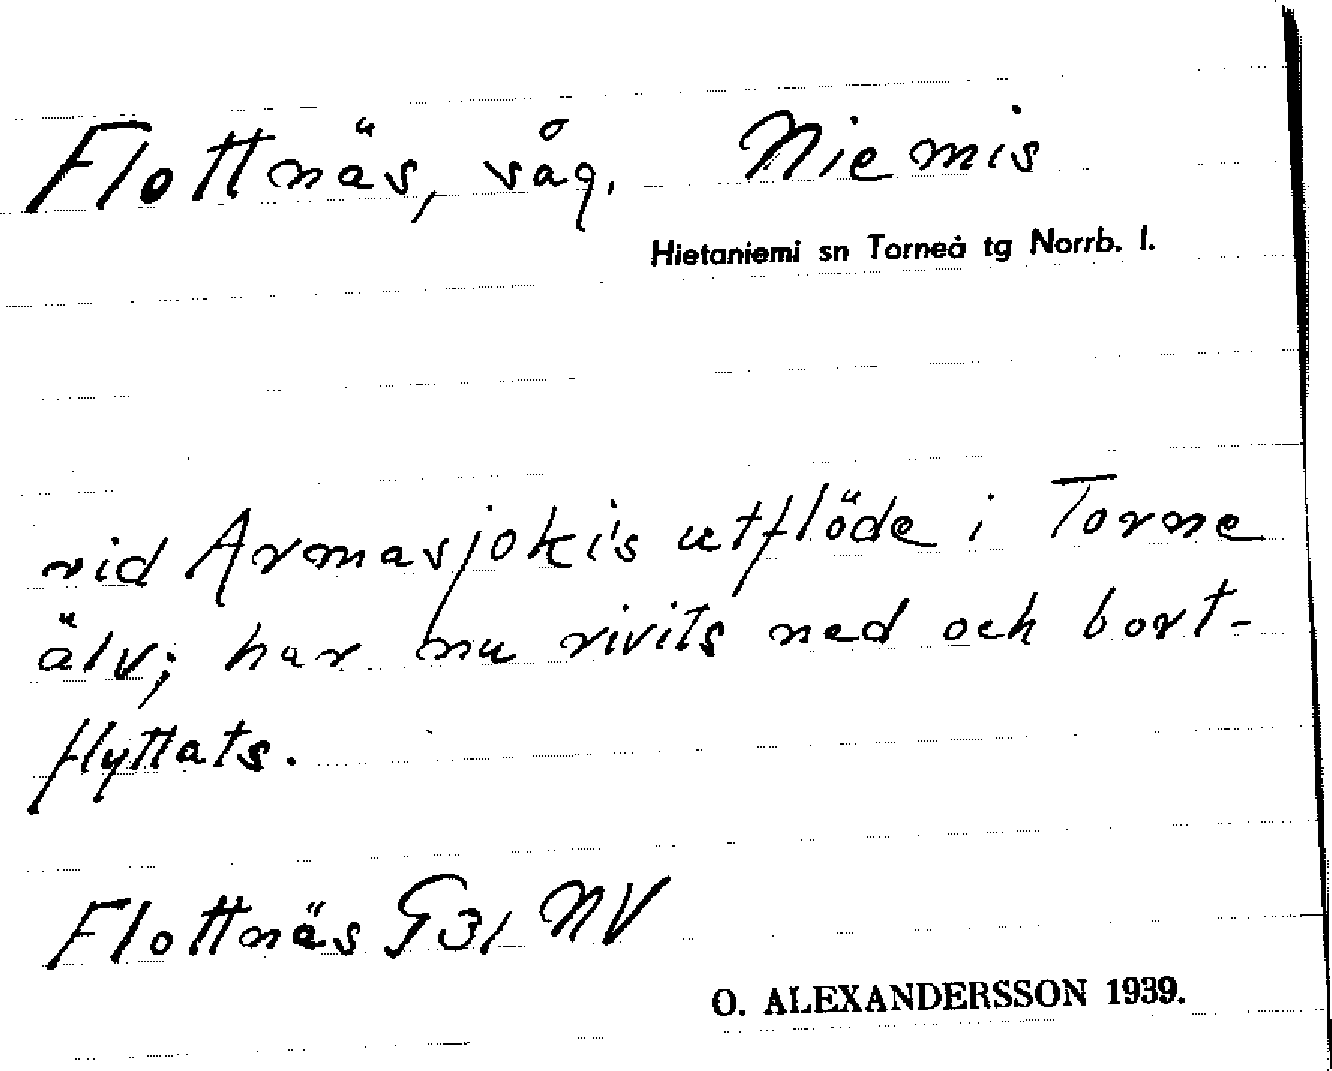 Flottnäs, såg. Niemis
Hietaniemi sn Torneå tg Norrb. l.
vid Armasjokis utflöde i Torne
älv; har nu rivits ned och bort-
flyttats.
Flottnäs G31 NV
O. ALEXANDERSSON 1939.